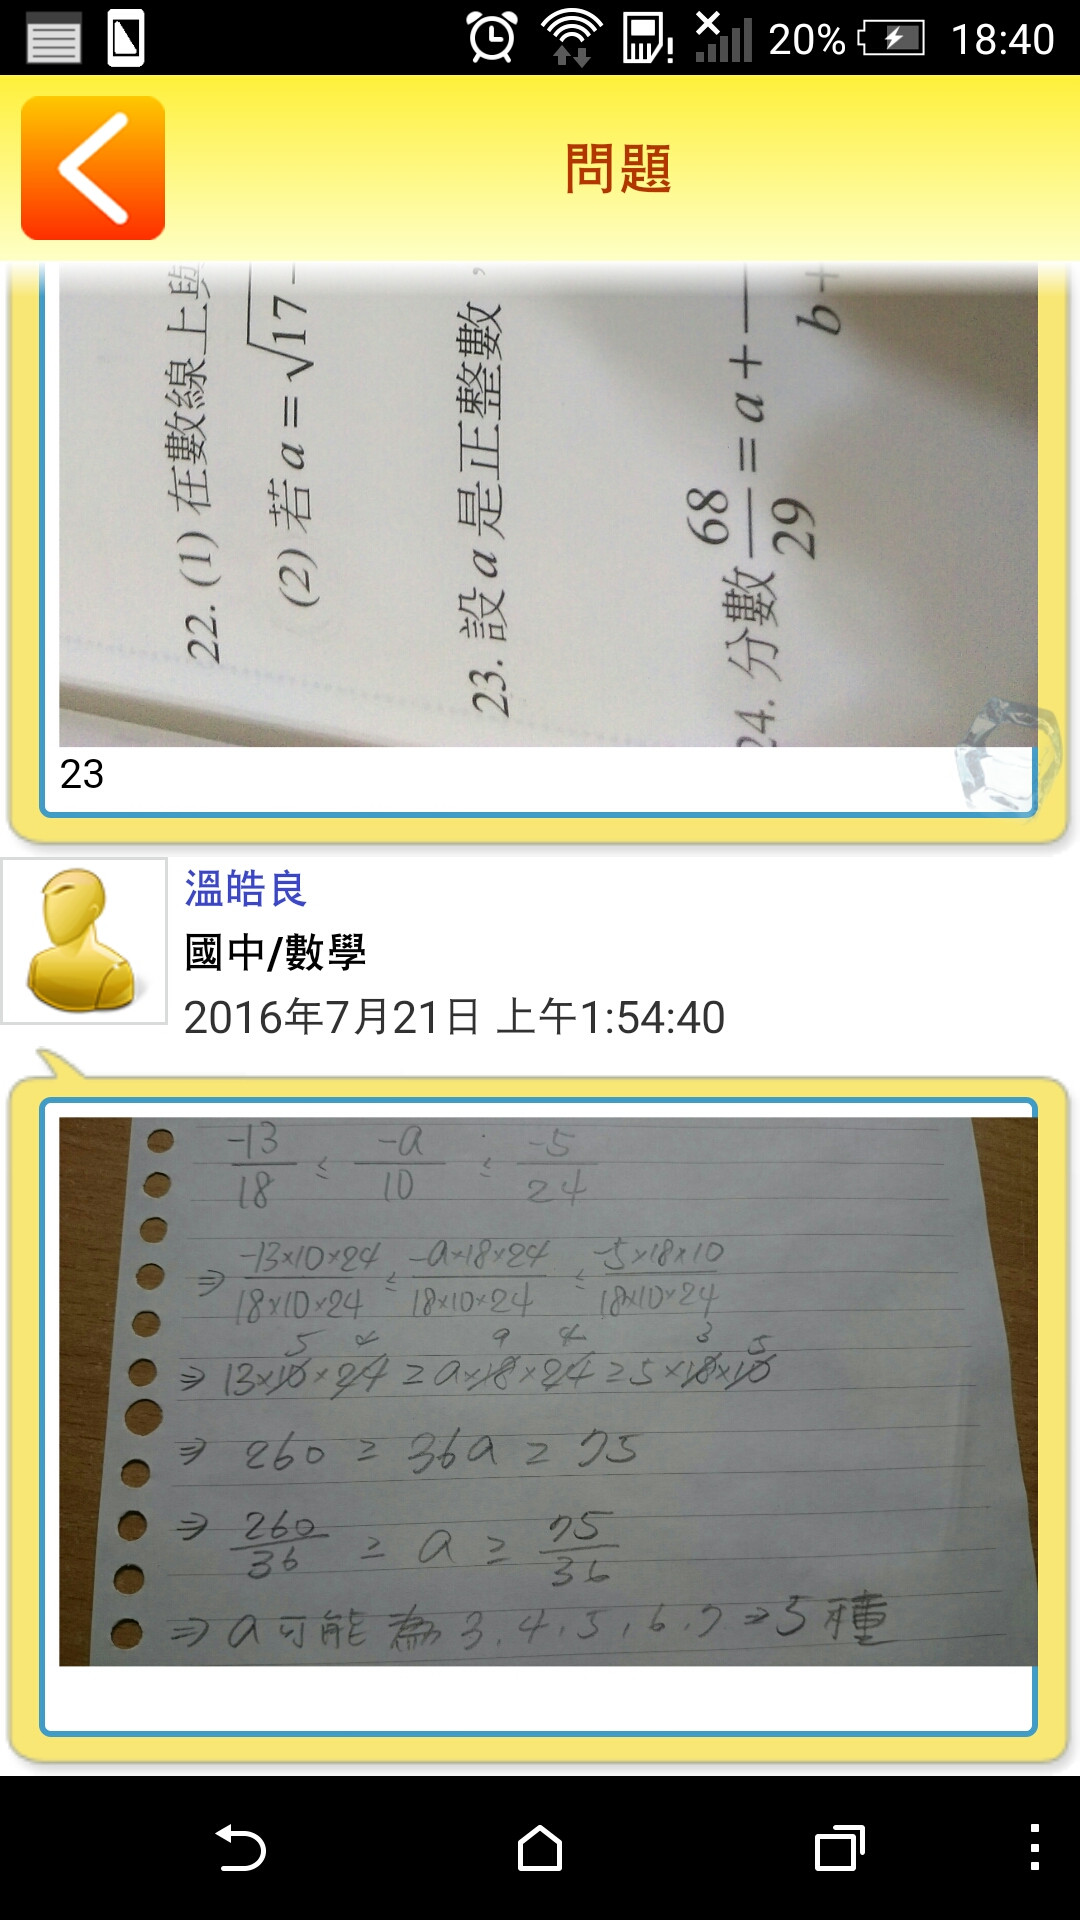 20% 18:40
問題
22. (1) 在數線上與
(2) 若 a = √17 -
23. 設 a 是正整數，
24. 分數 68/29 = a +
b+
23
溫皓良
國中/數學
2016年7月21日 上午1:54:40
-13/18 ≤ -a/10 ≤ -5/24
⇒ -13×10×24/18×10×24 ≤ -a×18×24/18×10×24 ≤ -5×18×10/18×10×24
5 4 9 4 3 5
⇒ 13×10×24 ≥ a×18×24 ≥ 5×18×10
⇒ 260 ≥ 36a ≥ 75
⇒ 260/36 ≥ a ≥ 75/36
⇒ a可能為 3, 4, 5, 6, 7 ⇒ 5種